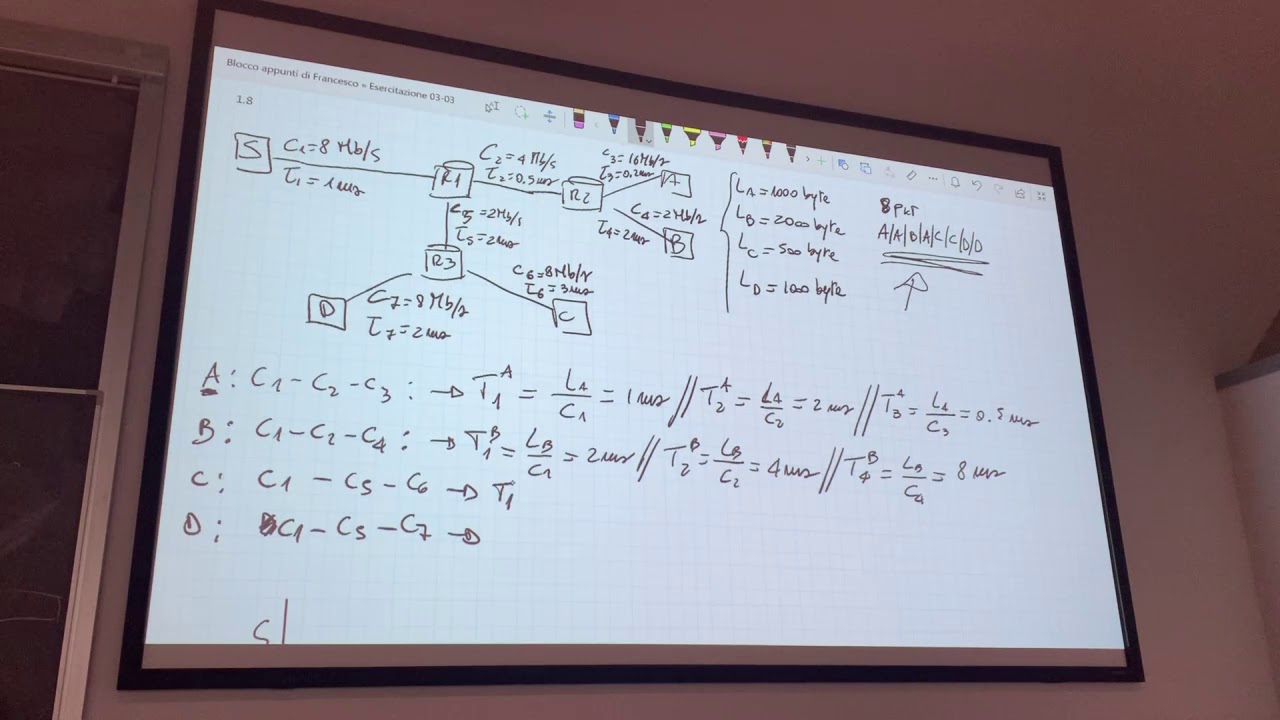 Blocco appunti di Francesco » Esercitazione 03-03
1.8
S
C1=8 Mb/s
τ1=1ms
R1
C2=4 Mb/s
τ2=0,5ms
R2
C3=16Mb/s
τ3=0,2ms
A
C4=2Mb/s
τ4=2ms
B
C5=2Mb/s
τ5=2ms
R3
C6=8Mb/s
τ6=3ms
C
C7=8Mb/s
τ7=2ms
D
LA=1000 byte
LB=2000 byte
LC=500 byte
LD=1000 byte
8 pkt
A|A|B|A|C|C|D|D
A: C1-C2-C3: → T1^A = LA/C1 = 1ms // T2^A = LA/C2 = 2ms // T3^A = LA/C3 = 0.5ms
B: C1-C2-C4: → T1^B = LB/C1 = 2ms // T2^B = LB/C2 = 4ms // T4^B = LB/C4 = 8ms
C: C1-C5-C6 → T1
D: C1-C5-C7 →
S